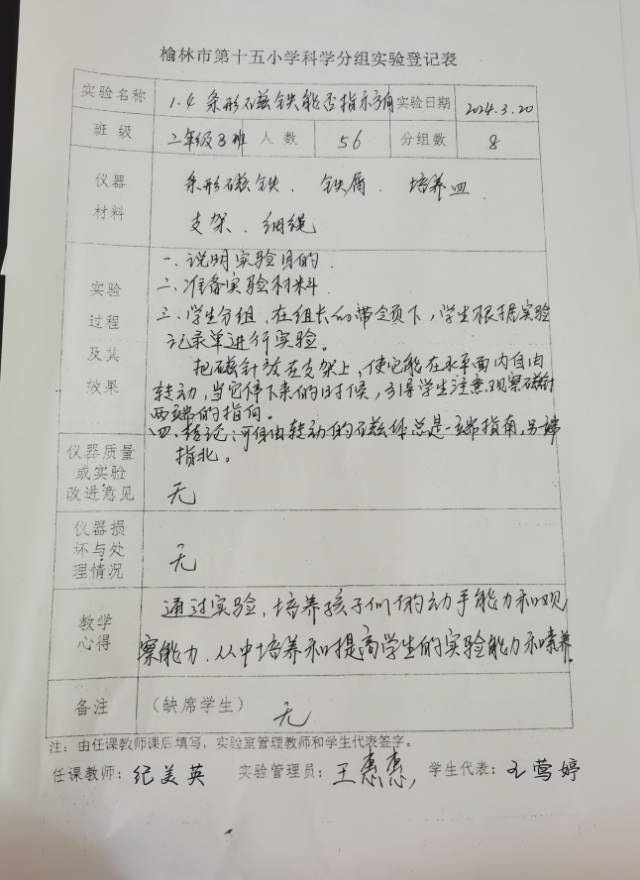 榆林市第十五小学科学分组实验登记表
实验名称 1.4 条形磁铁能否指示方向 实验日期 2024.3.20
班级 二年级3班 人数 56 分组数 8
仪器 条形磁铁、铁屑、培养皿
材料 支架、细绳
一、说明实验目的
实验 二、准备实验材料
过程 三、学生分组,在组长的带领下,学生根据实验
记录单进行实验。
及其 把磁针放在支架上,使它能在水平面内自由
效果 转动,当它停下来的时候,引导学生注意观察磁针
两端的指向。
四、结论:可自由转动的磁体总是一端指南,另一端
指北。
仪器质量
或实验
改进意见 无
仪器损
坏与处
理情况 无
教学 通过实验,培养孩子们的动手能力和观
心得 察能力,从中培养和提高学生的实验能力和素养。
备注 (缺席学生) 无
注:由任课教师课后填写,实验室管理教师和学生代表签字。
任课教师:纪美英 实验管理员:王惠惠, 学生代表:王莺婷